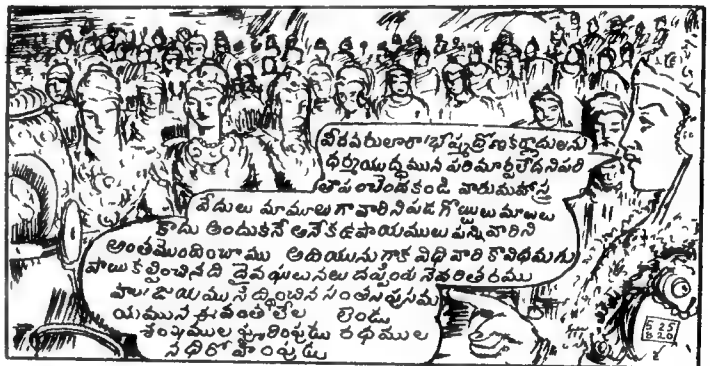 వీరవరులారా! భీష్మద్రోణకర్ణాదులను
ధర్మయుద్ధమున పరిమార్చలేదనిపరి
తాపంచెందకండి వారుమహాస్త్ర
వేదులు మామూలుగా వారినిపడగొట్టుట మాటలు
కాదు అందుకనే అనేకఉపాయములు పన్ని వారిని
అంతమొందించాము అదియునుగాక విధి వారి కావిధమగు
చావుకల్పించినది దైవఘటనలు దప్పింప నెవరితరము
జయము సిద్ధించిన సంతసపుసమ
యమున ఈచింతలేల లెండు
శంఖముల పూరింపుడు రథముల
నధిరోహింపుడు
525
820